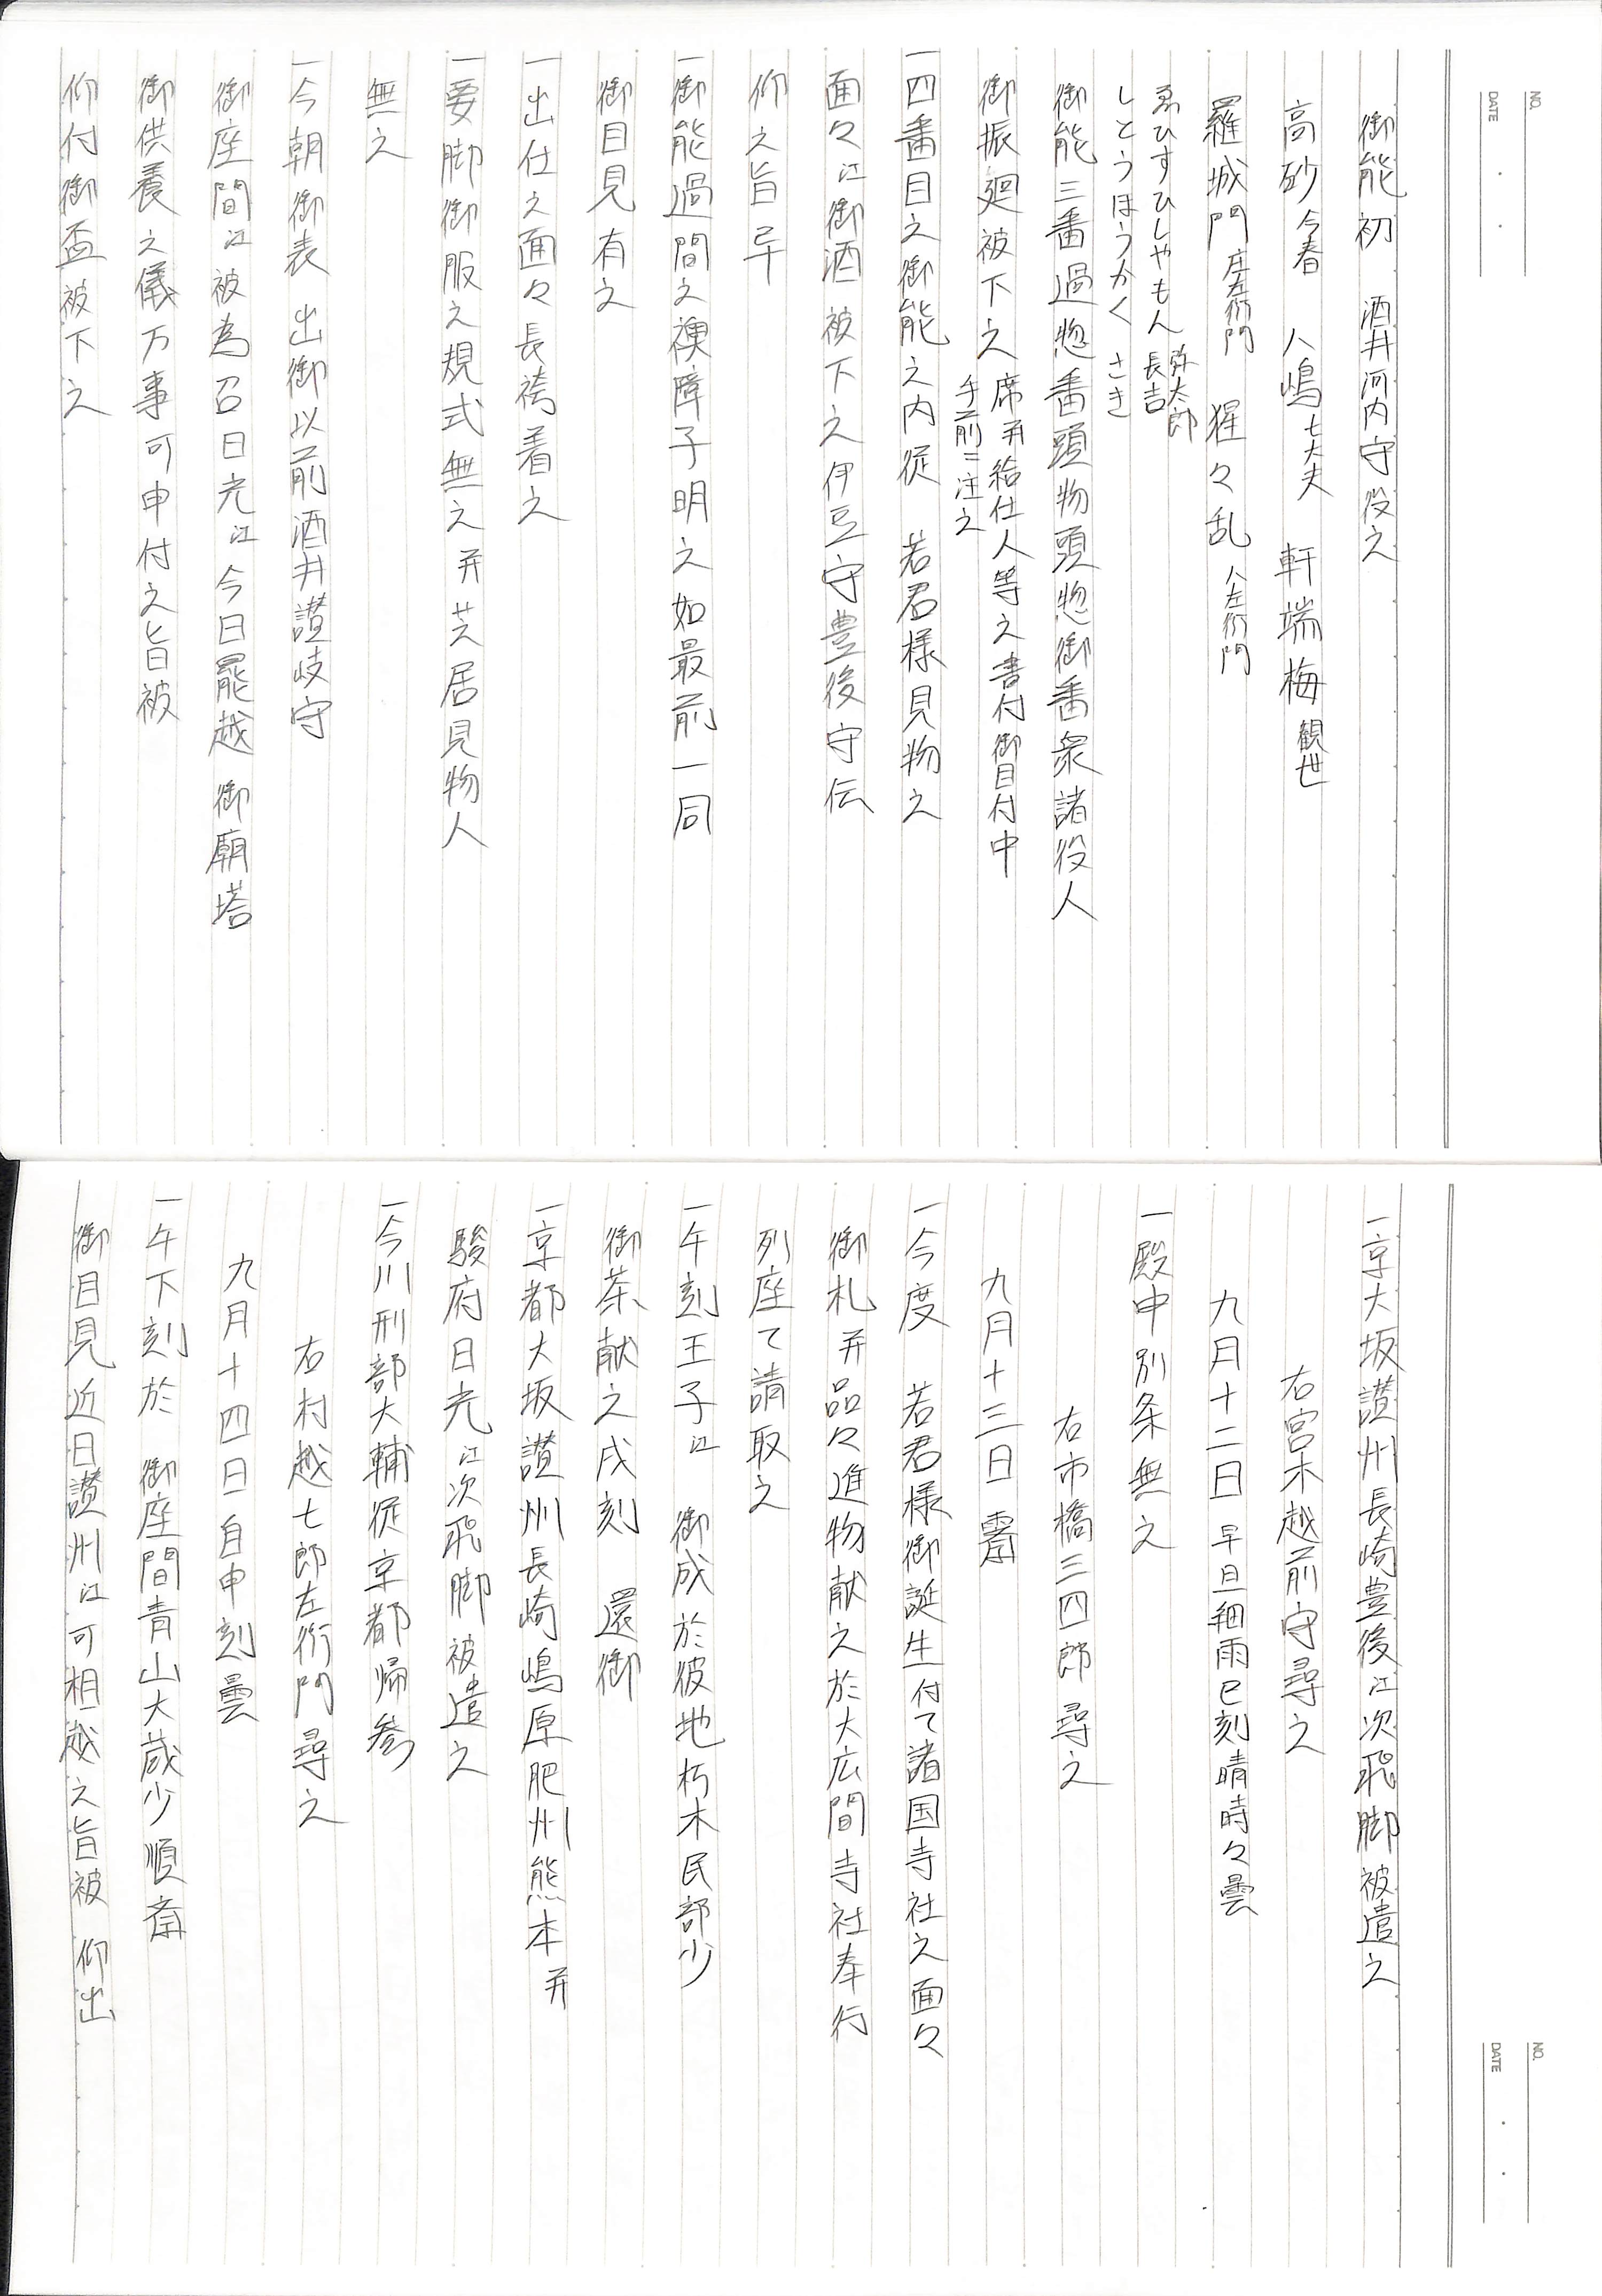 NO.
DATE
御能初　酒井河内守役之
高砂 今春　八嶋 七大夫　軒端梅 観世
羅城門 庄左衛門　猩々乱 八左衛門
ゑひすひしやもん 弥太郎 長吉
しとうほうかく　さき
御能三番過惣番頭物頭惣御番衆諸役人
御振廻被下之 席并給仕人等之書付御目付中
手前ニ注之
一四番目之御能之内従　若君様見物之
面々江御酒被下之伊豆守豊後守伝
仰之旨早
一御能過間之襖障子明之如最前一同
御目見有之
一出仕之面々長袴着之
一要脚御服之規式無之并芝居見物人
無之
一今朝御表　出御以前酒井讃岐守
御座間江被為召日光江今日罷越御廟塔
御供養之儀万事可申付之旨被
仰付御盃被下之
NO.
DATE
一京大坂讃州長崎豊後江次飛脚被遣之
右宮木越前守尋之
九月十二日　早旦細雨巳刻晴時々曇
一殿中別条無之
右市橋三四郎尋之
九月十三日　霽
一今度　若君様御誕生付て諸国寺社之面々
御札并品々進物献之於大広間寺社奉行
列座て請取之
一午刻王子江　御成於彼地朽木民部少
御茶献之戌刻　還御
一京都大坂讃州長崎嶋原肥州熊本并
駿府日光江次飛脚被遣之
一今川刑部大輔従京都帰参
右村越七郎左衛門尋之
九月十四日自申刻曇
一午下刻於　御座間青山大蔵少順斎
御目見近日讃州江可相越之旨被　仰出